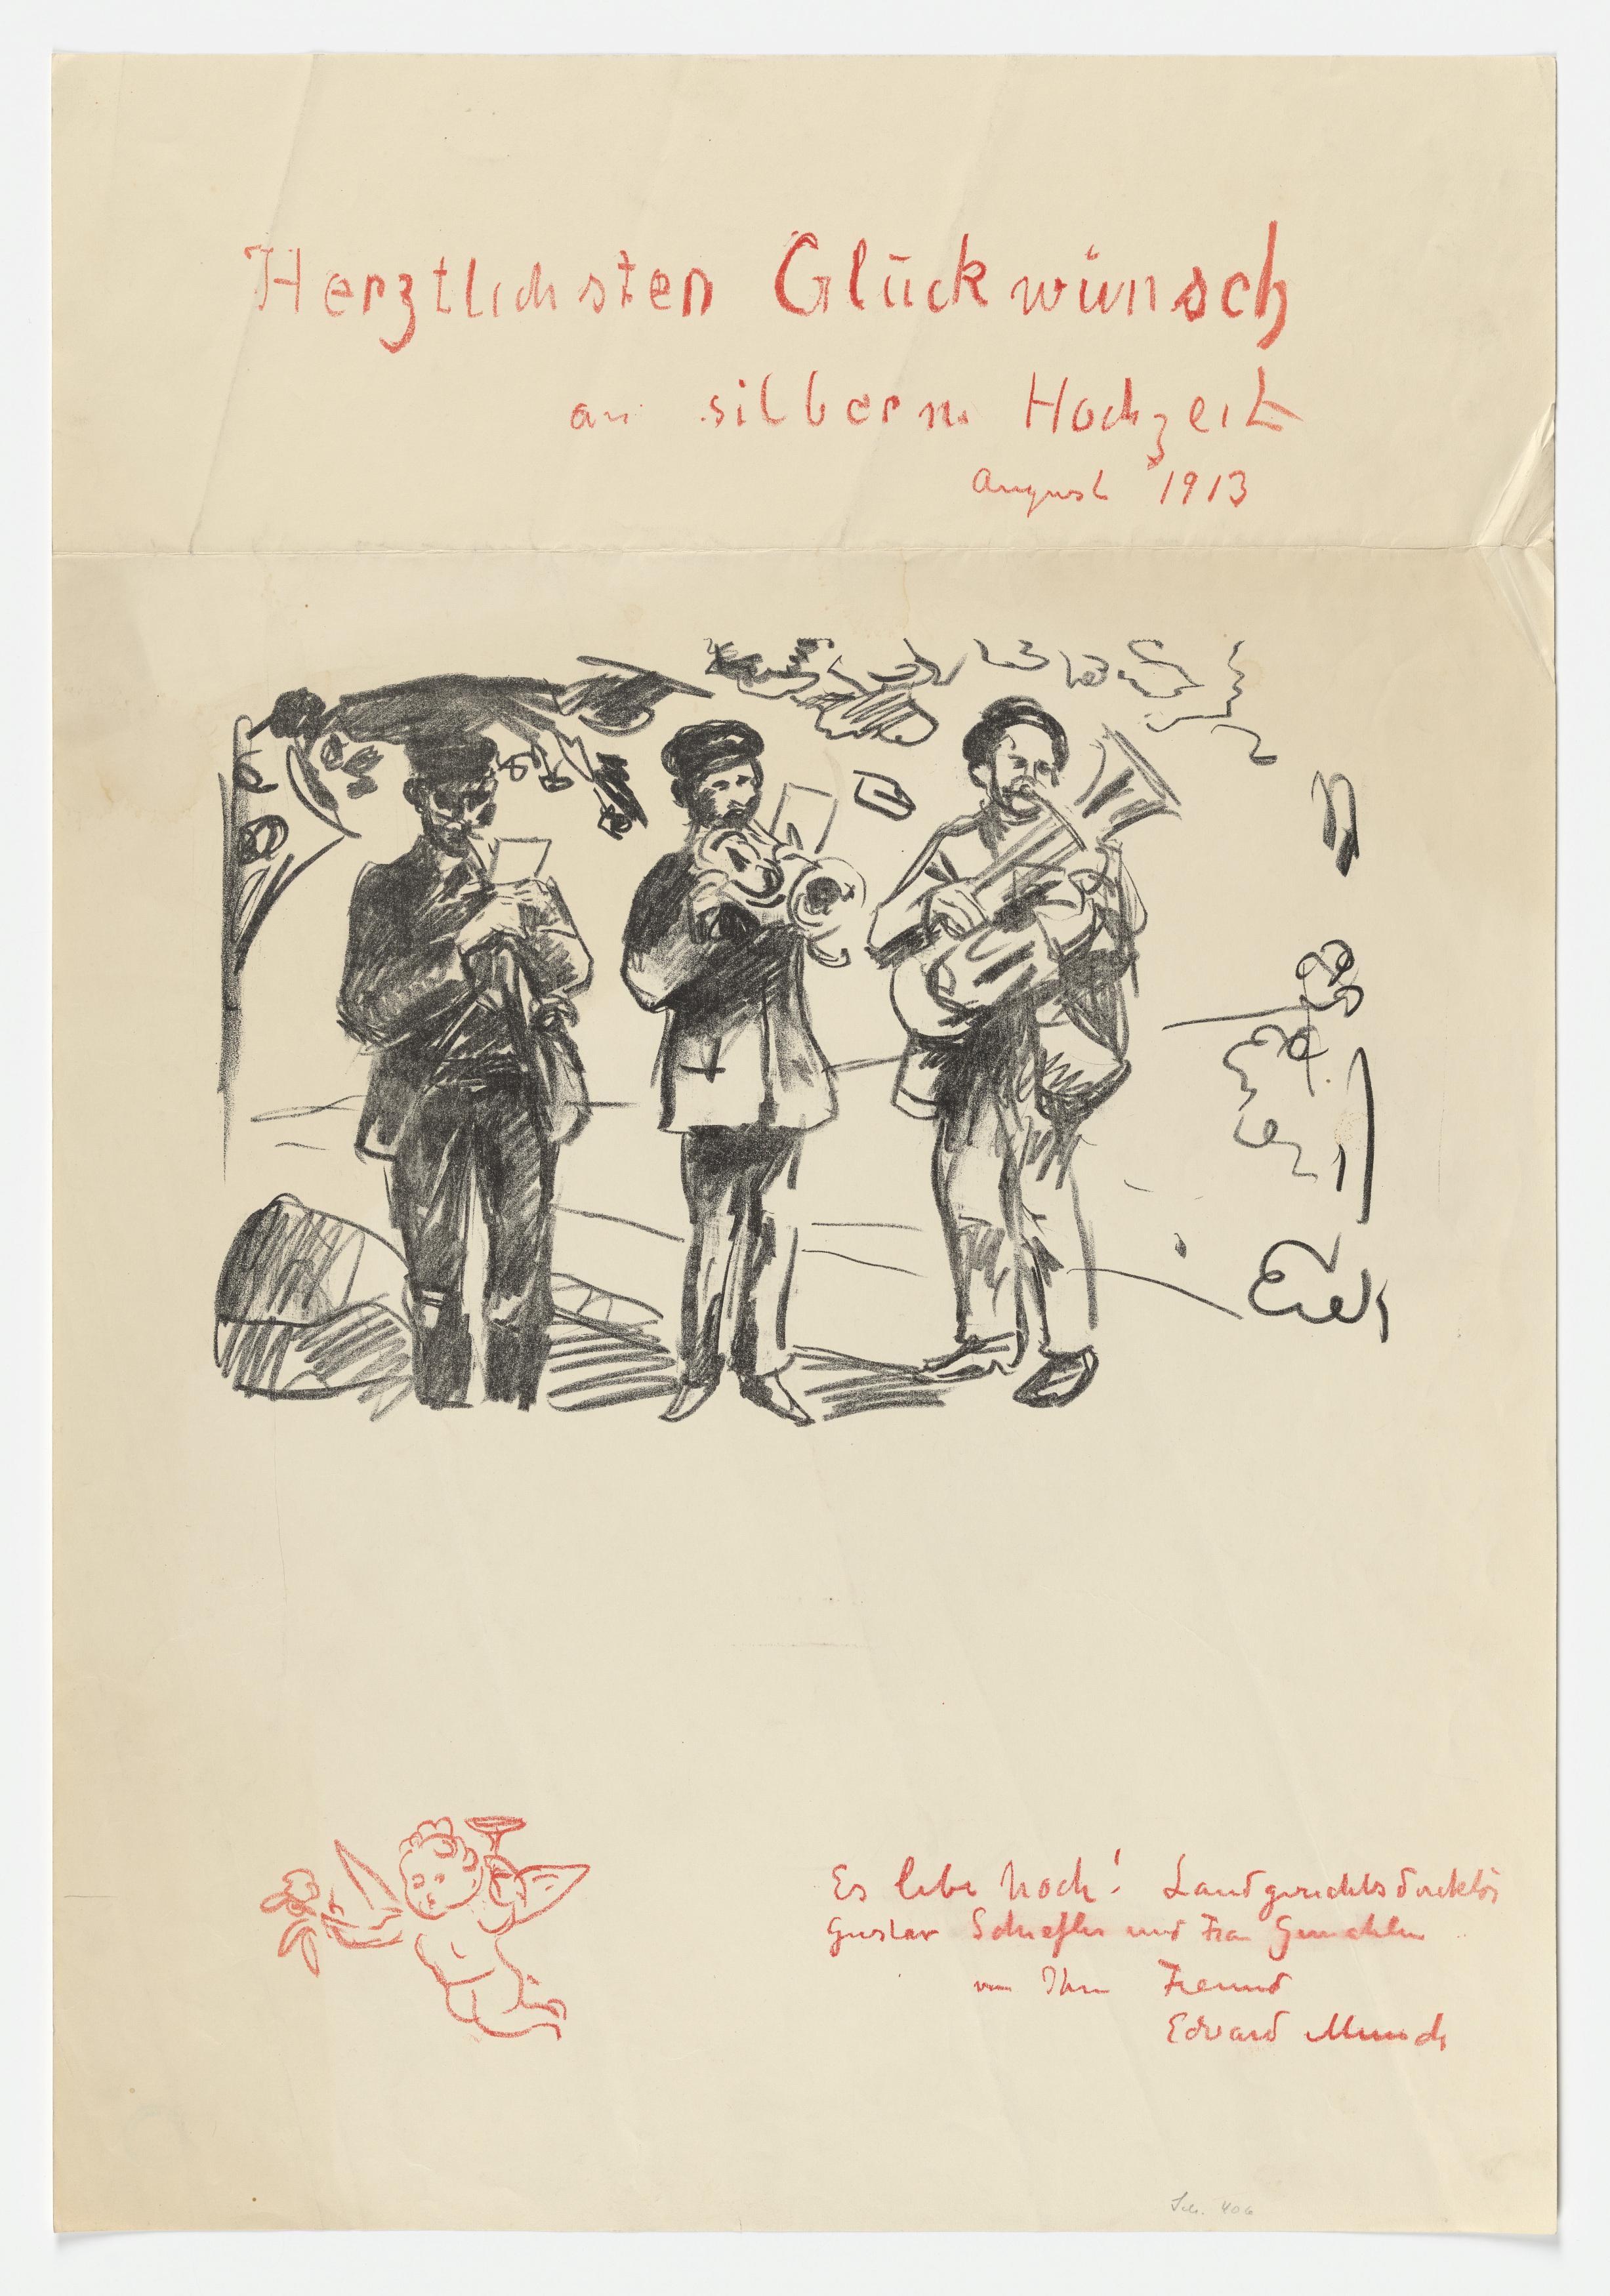 Herztlichsten Glückwünsch
an silbern Hochzeit
August 1913
Es lebe hoch! Landgerichtsdirektor
Gustav Schiefler und Frau Gemahlin
von Ihrn Freund
Edvard Munch
Sch. 406